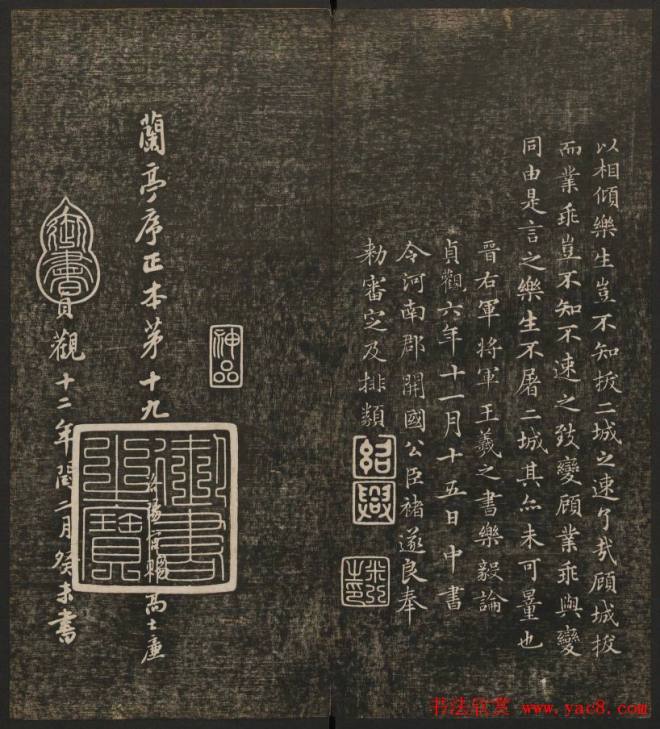 以相傾樂生豈不知拔二城之速了哉顧城拔
而業乖豈不知不速之致變顧業乖與變
同由是言之樂生不屠二城其亦未可量也
晉右軍將軍王羲之書樂毅論
貞觀六年十一月十五日中書
令河南郡開國公臣褚遂良奉
勅審定及排類
紹興
神品
蘭亭序正本第十九
賜高士廉
御書之寶
御書
貞觀十二年閏二月癸未書
书法欣赏 www.yac8.com